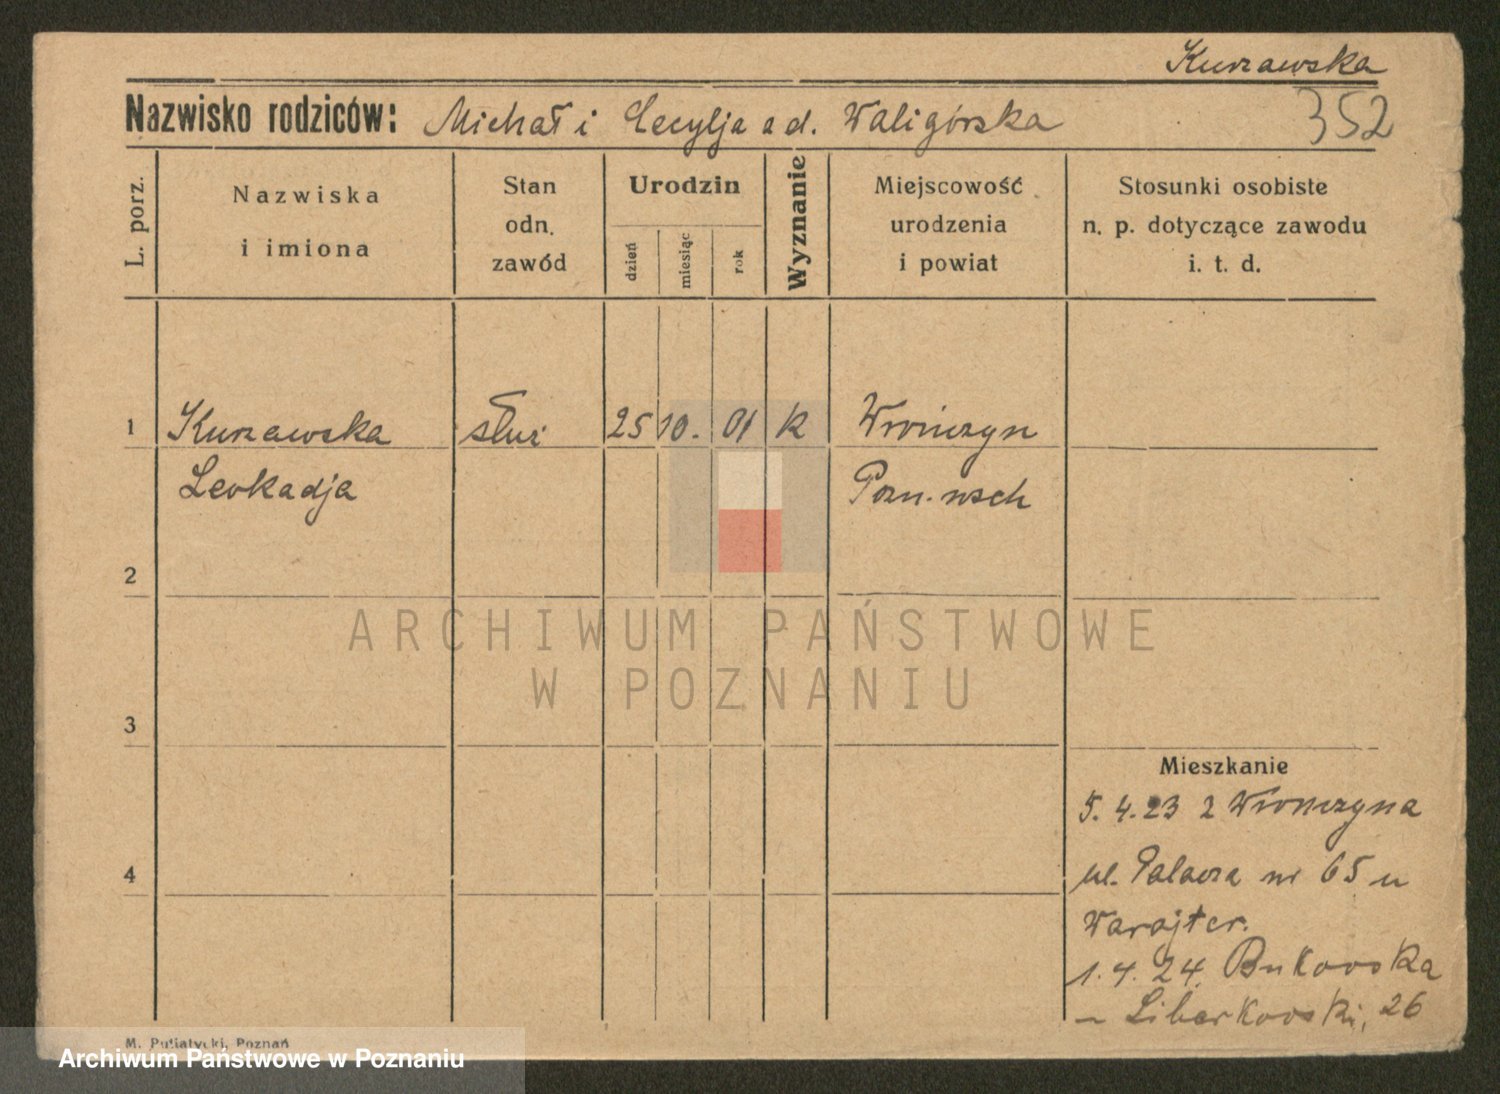 Kurzawska
352
Nazwisko rodziców: Michał i Cecylja a d. Waligórska
L. porz.
Nazwiska
i imiona
Stan
odn.
zawód
Urodzin
dzień
miesiąc
rok
Wyznanie
Miejscowość
urodzenia
i powiat
Stosunki osobiste
n. p. dotyczące zawodu
i. t. d.
1 Kurzawska służ 25 10. 01 k Wronczyn
Leokadja Pozn. wsch
2
ARCHIWUM PAŃSTWOWE
W POZNANIU
3
Mieszkanie
5. 4. 23 z Wronczyna
4
ul. Palacza nr 65 u
1. 4. 24. Bukowska
26
M. Putiatycki, Poznań
Archiwum Państwowe w Poznaniu